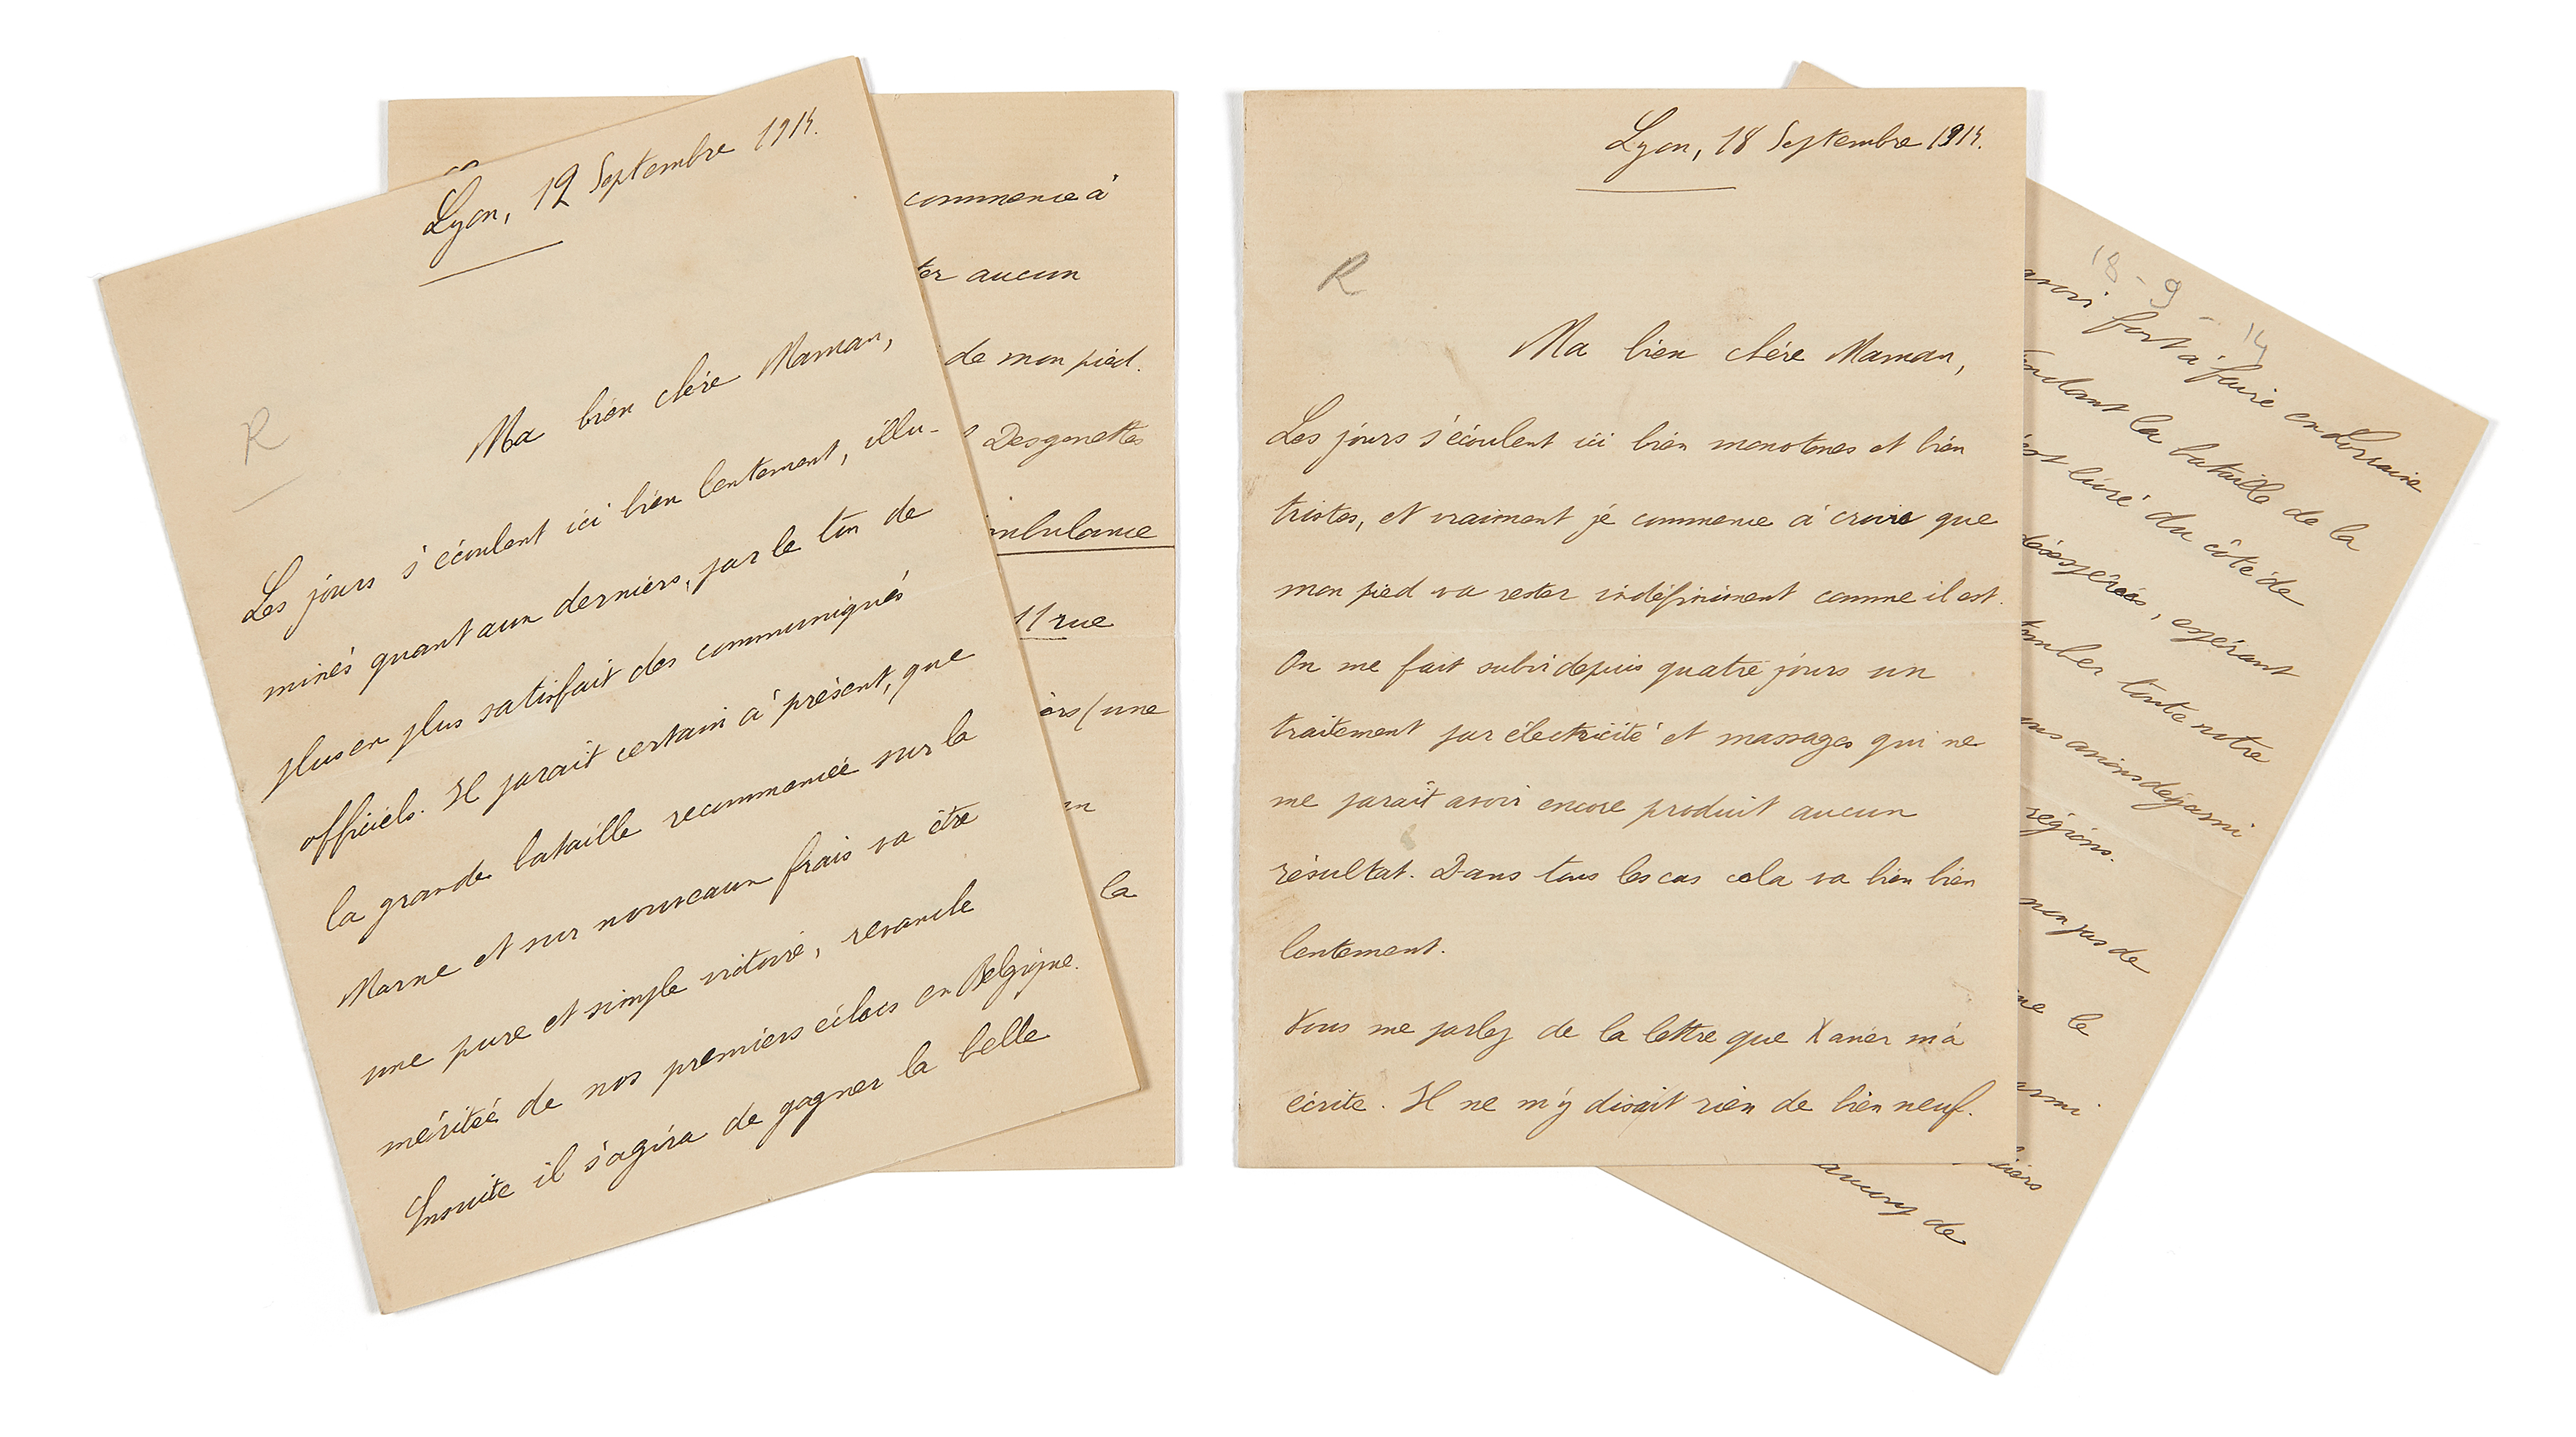 Lyon, 12 Septembre 1914.
R
Ma bien chère Maman,
Les jours s'écoulent ici bien lentement, illu-
minés quant aux derniers, par le ton de
plus en plus satisfait des communiqués
officiels. Il parait certain à présent, que
la grande bataille recommencée sur la
Marne et sur nouveaux frais va être
une pure et simple victoire, revanche
méritée de nos premiers échecs en Belgique.
Ensuite il s'agira de gagner la belle
commence à
ter aucun
de mon pied.
s Desgenettes
mbulance
11 rue
ers (une
en
la
Lyon, 18 Septembre 1914.
R
Ma bien chère Maman,
Les jours s'écoulent ici bien monotones et bien
tristes, et vraiment je commence à croire que
mon pied va rester indéfiniment comme il est.
On me fait subir depuis quatre jours un
traitement par électricité et massages qui ne
me parait avoir encore produit aucun
résultat. Dans tous les cas cela va bien bien
lentement.
Vous me parlez de la lettre que Xavier m'a
écrite. Il ne m'y disait rien de bien neuf.
18-9-14
avoir fort à faire en Lorraine
endant la bataille de la
livré du côté de
désespérées, espérant
tomber toute notre
avions dégarni
régions.
non pas de
me le
armi
liers
de